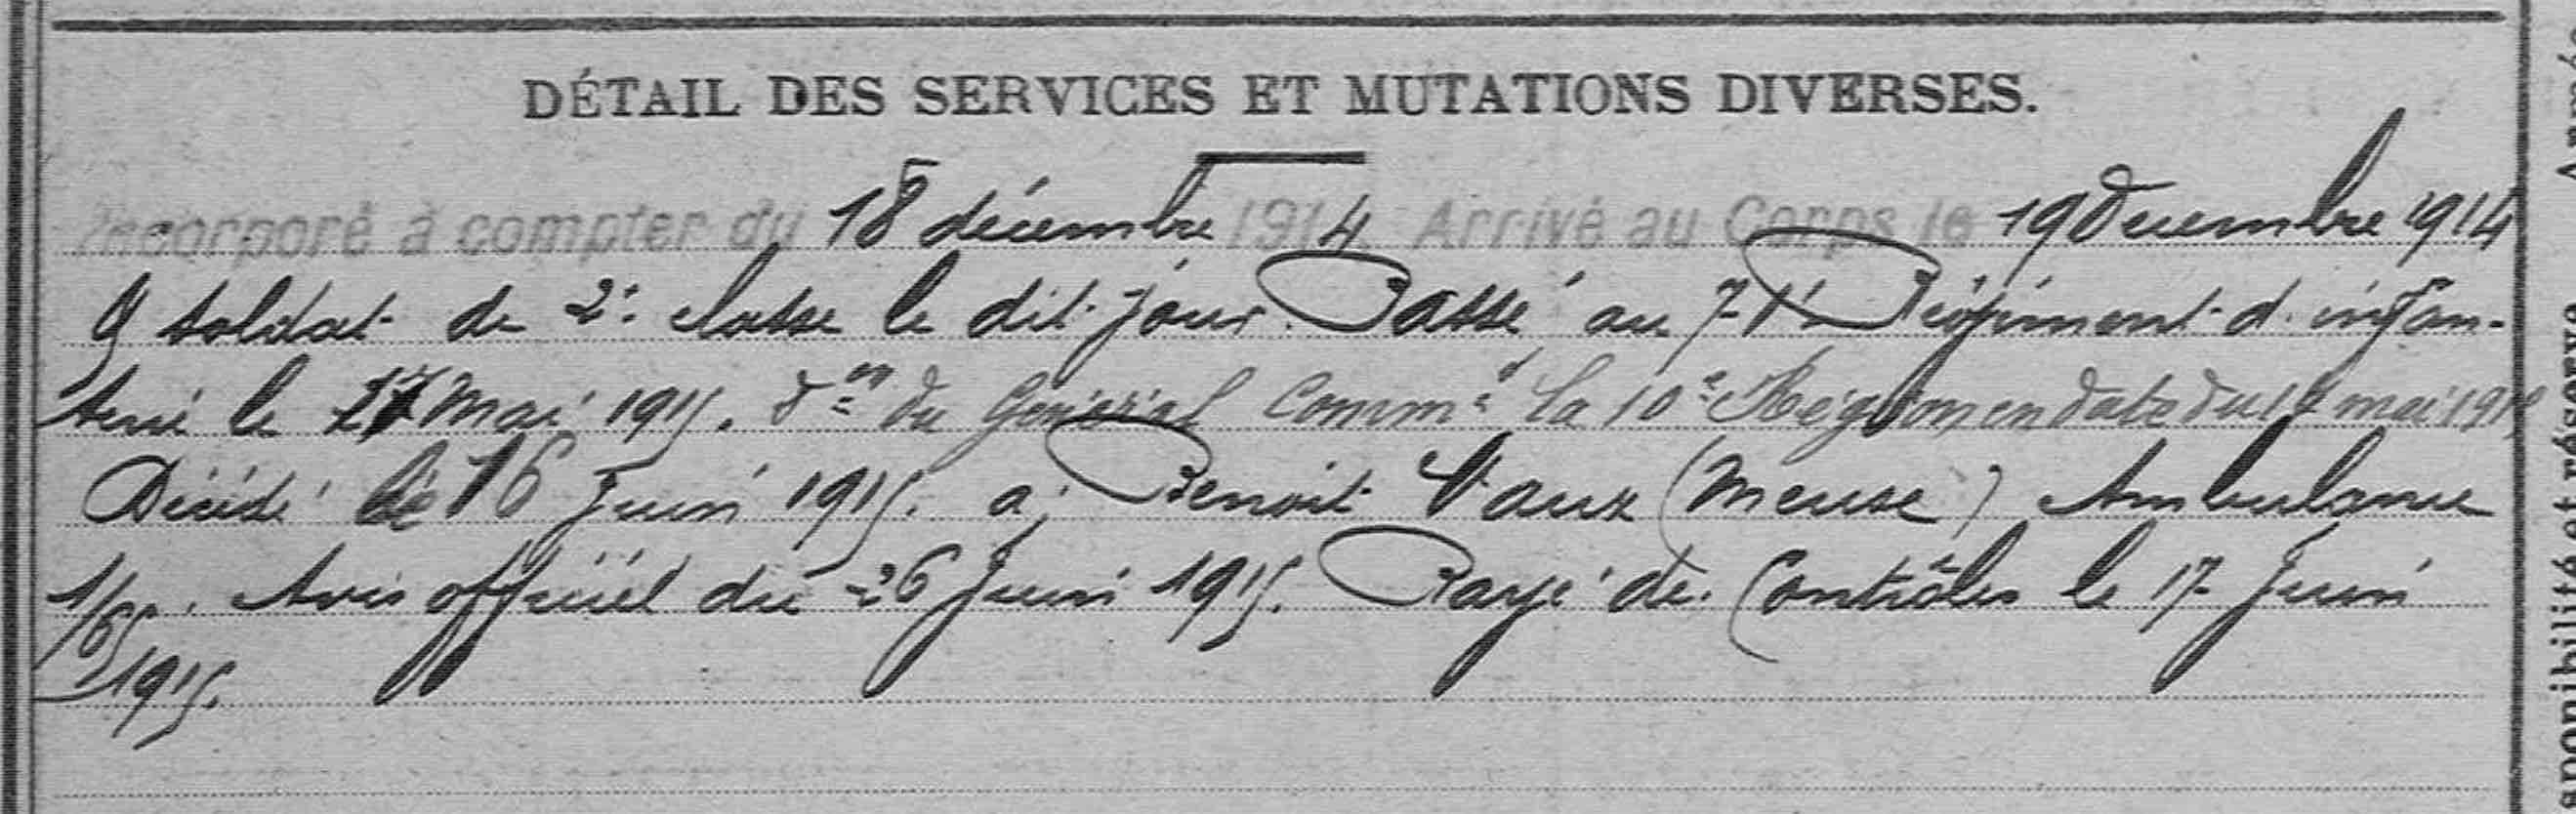 DÉTAIL DES SERVICES ET MUTATIONS DIVERSES.
Incorporé à compter du 18 décembre 1914. Arrivé au Corps le 19 Décembre 1914
soldat de 2e classe le dit jour. Passé au Régiment d'infan-
terie le Mai 1915. Don du Général Commt la 10e Région en date du mai 1915
Décédé le 16 Juin 1915. à Benoit Vaux (Meuse) Ambulance
1/65. Avis officiel du 26 Juin 1915. Rayé des Contrôles le 17 Juin
1915.